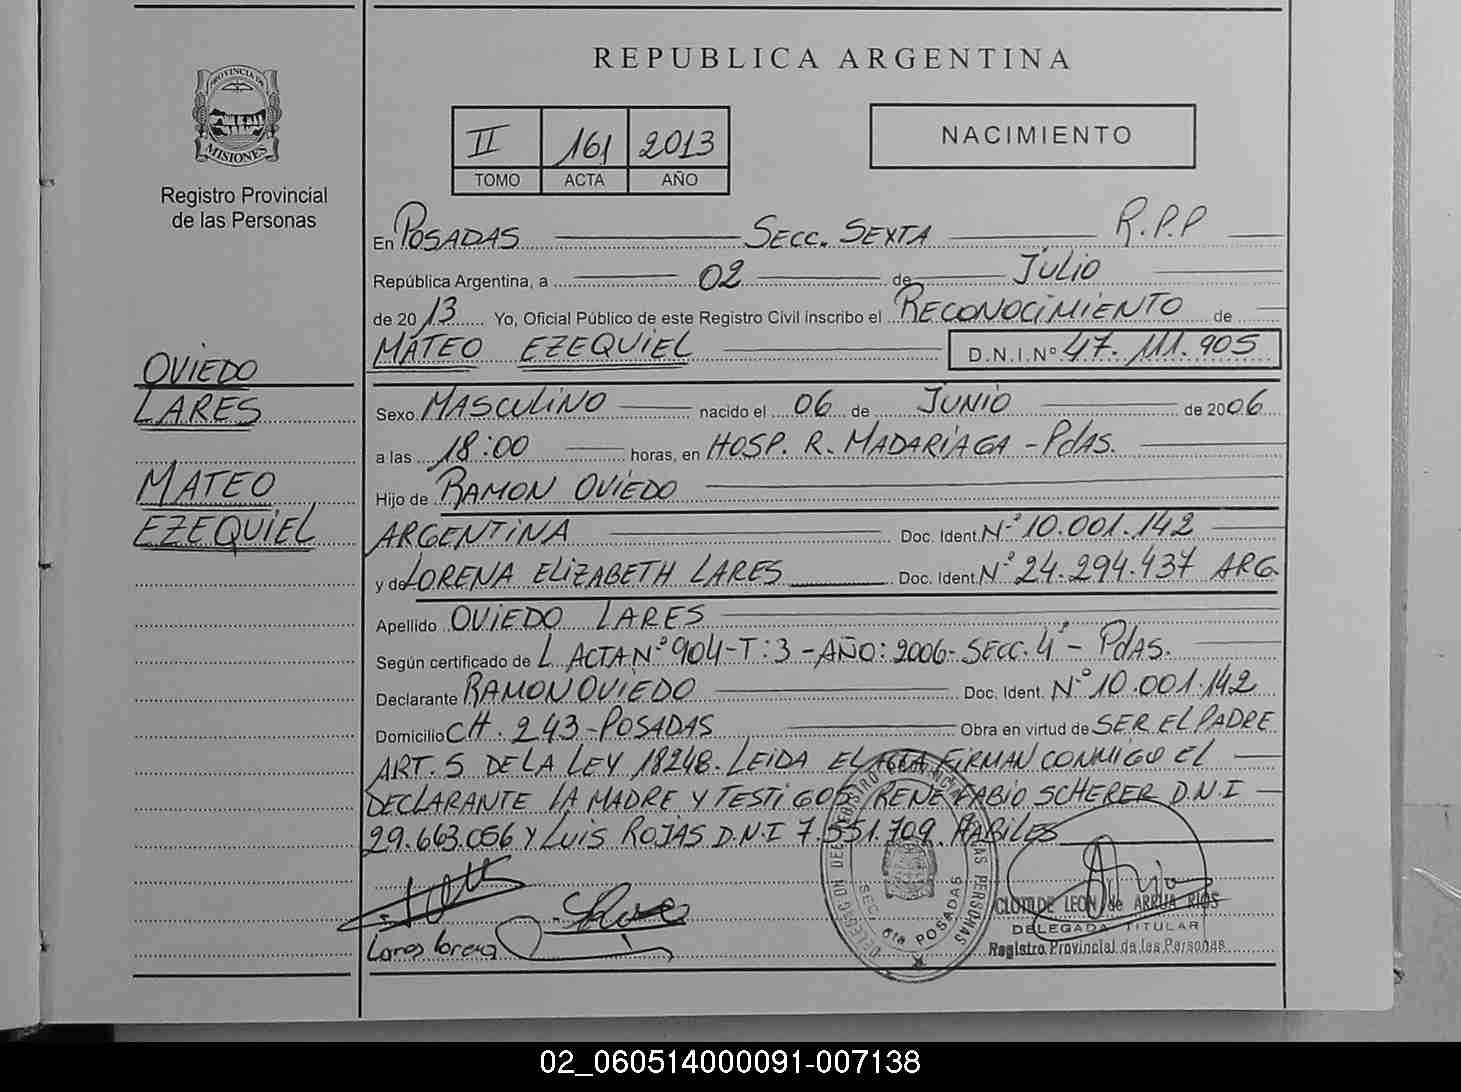 REPUBLICA ARGENTINA
PROVINCIA DE
MISIONES
Registro Provincial
de las Personas
II 161 2013
TOMO ACTA AÑO
NACIMIENTO
En POSADAS SECC. SEXTA R.P.P
República Argentina, a 02 de JULIO
de 2013 Yo, Oficial Público de este Registro Civil inscribo el RECONOCIMIENTO de
MATEO EZEQUIEL D.N.I.Nº 47.111.905
OVIEDO
LARES
MATEO
EZEQUIEL
Sexo MASCULINO nacido el 06 de JUNIO de 2006
a las 18:00 horas, en HOSP. R. MADARIAGA - PdAS.
Hijo de RAMON OVIEDO
ARGENTINA Doc. Ident. Nº 10.001.142
y de LORENA ELIZABETH LARES Doc. Ident. Nº 24.294.437 ARG
Apellido OVIEDO LARES
Según certificado de L ACTA Nº 904-T:3-AÑO:2006-SECC.4ª-PdAS.
Declarante RAMON OVIEDO Doc. Ident. Nº 10.001.142
Domicilio CH. 243-POSADAS Obra en virtud de SER EL PADRE
ART. 5 DE LA LEY 18248. LEIDA EL ACTA FIRMAN CONMIGO EL
DECLARANTE LA MADRE Y TESTIGOS RENE FABIO SCHERER D.N.I
29.663.056 Y LUIS ROJAS D.N.I 7.551.709 HABILES
Lares Lorena
SEC. 6ta POSADAS
CLOTILDE LEON de ARRUA RIOS
DELEGADA TITULAR
Registro Provincial de las Personas
02_060514000091-007138